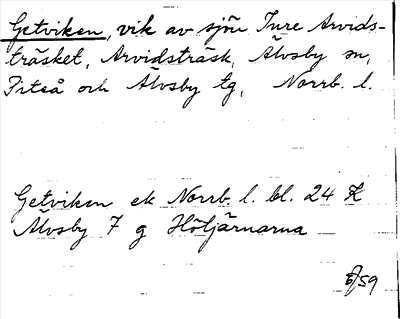 Getviken, vik av sjön Inre Arvids-
träsket, Arvidsträsk, Älvsby sn,
Piteå och Älvsby tg, Norrb. l.
Getviken ek Norrb. l. bl. 24 K
Älvsby 7 g Höljärnarna
/59